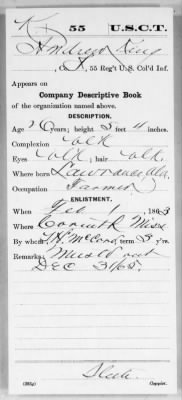 K 55 U.S.C.T.
Andrew King
, Co. K, 55 Reg't U.S. Col'd Inf.
Appears on
Company Descriptive Book
of the organization named above.
DESCRIPTION.
Age 26 years; height 5 feet 4 inches.
Complexion Blk
Eyes Blk; hair Blk.
Where born Lawrance Ala.
Occupation Farmer
ENLISTMENT.
When Feb 1, 1863
Where Corinth Miss.
By whom McCord; term 3 y'rs.
Remarks: Must'd out
DEC 31 65.
Copyist.